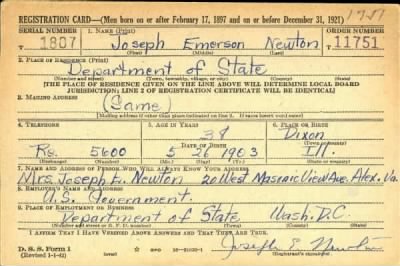 1751
REGISTRATION CARD—(Men born on or after February 17, 1897 and on or before December 31, 1921)
SERIAL NUMBER 1. NAME (Print) ORDER NUMBER
1807 Joseph Emerson Newton 11751
2. PLACE OF RESIDENCE (Print)
Department of State
(Number and street) (Town, township, village, or city) (County) (State)
[THE PLACE OF RESIDENCE GIVEN ON THE LINE ABOVE WILL DETERMINE LOCAL BOARD
JURISDICTION; LINE 2 OF REGISTRATION CERTIFICATE WILL BE IDENTICAL]
3. MAILING ADDRESS
(Same)
[Mailing address if other than place indicated on line 2. If same insert word same]
4. TELEPHONE 5. AGE IN YEARS 6. PLACE OF BIRTH
38 Dixon
DATE OF BIRTH (Town or county)
Re. 5600 5 26 1903 Ill.
(Exchange) (Number) (Mo.) (Day) (Yr.) (State or country)
7. NAME AND ADDRESS OF PERSON WHO WILL ALWAYS KNOW YOUR ADDRESS
Mrs. Joseph E. Newton 20 West Masonic View Ave. Alex. Va.
8. EMPLOYER'S NAME AND ADDRESS
U.S. Government.
9. PLACE OF EMPLOYMENT OR BUSINESS
Department of State Wash. D.C.
(Number and street or R. F. D. number) (Town) (County) (State)
I AFFIRM THAT I HAVE VERIFIED ABOVE ANSWERS AND THAT THEY ARE TRUE.
D. S. S. Form 1
(Revised 1-1-42) GPO 16—21630-1 Joseph E. Newton
(Registrant's signature)